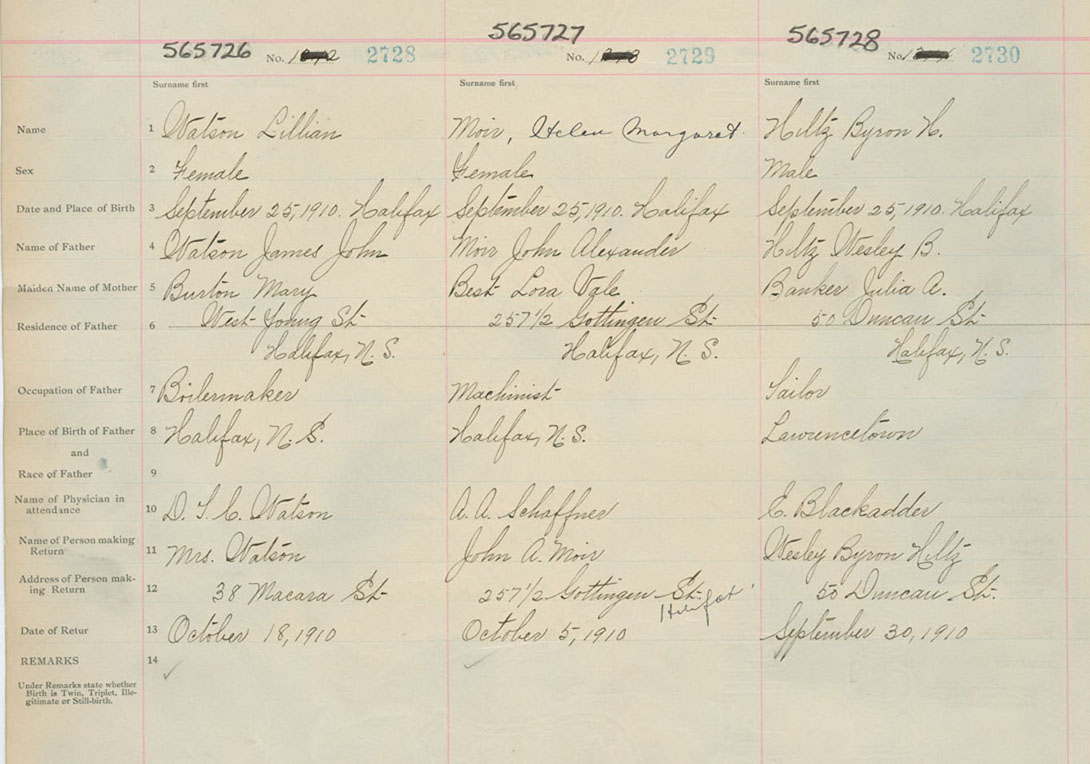 565726 565727 565728
No. 2728 No. 2729 No. 2730
Surname first Surname first Surname first
Name 1 Watson Lillian Moir, Helen Margaret Hiltz Byron H.
Sex 2 Female Female Male
Date and Place of Birth 3 September 25, 1910. Halifax September 25, 1910. Halifax September 25, 1910. Halifax
Name of Father 4 Watson James John Moir John Alexander Hiltz Wesley B.
Maiden Name of Mother 5 Burton Mary Best Lora Vale Banker Julia A.
Residence of Father 6 West Young St. 257 1/2 Gottingen St. 50 Duncan St.
Halifax, N.S. Halifax, N.S. Halifax, N.S.
Occupation of Father 7 Boilermaker Machinist Sailor
Place of Birth of Father 8 Halifax, N.S. Halifax, N.S. Lawrencetown
and
Race of Father 9
Name of Physician in
attendance 10 D. S. C. Watson A. A. Schaffner E. Blackadder
Name of Person making
Return 11 Mrs. Watson John A. Moir Wesley Byron Hiltz
Address of Person mak-
ing Return 12 38 Macara St. 257 1/2 Gottingen St. Halifax 50 Duncan St.
Date of Retur 13 October 18, 1910 October 5, 1910 September 30, 1910
REMARKS 14
Under Remarks state whether
Birth is Twin, Triplet, Ille-
gitimate or Still-birth.